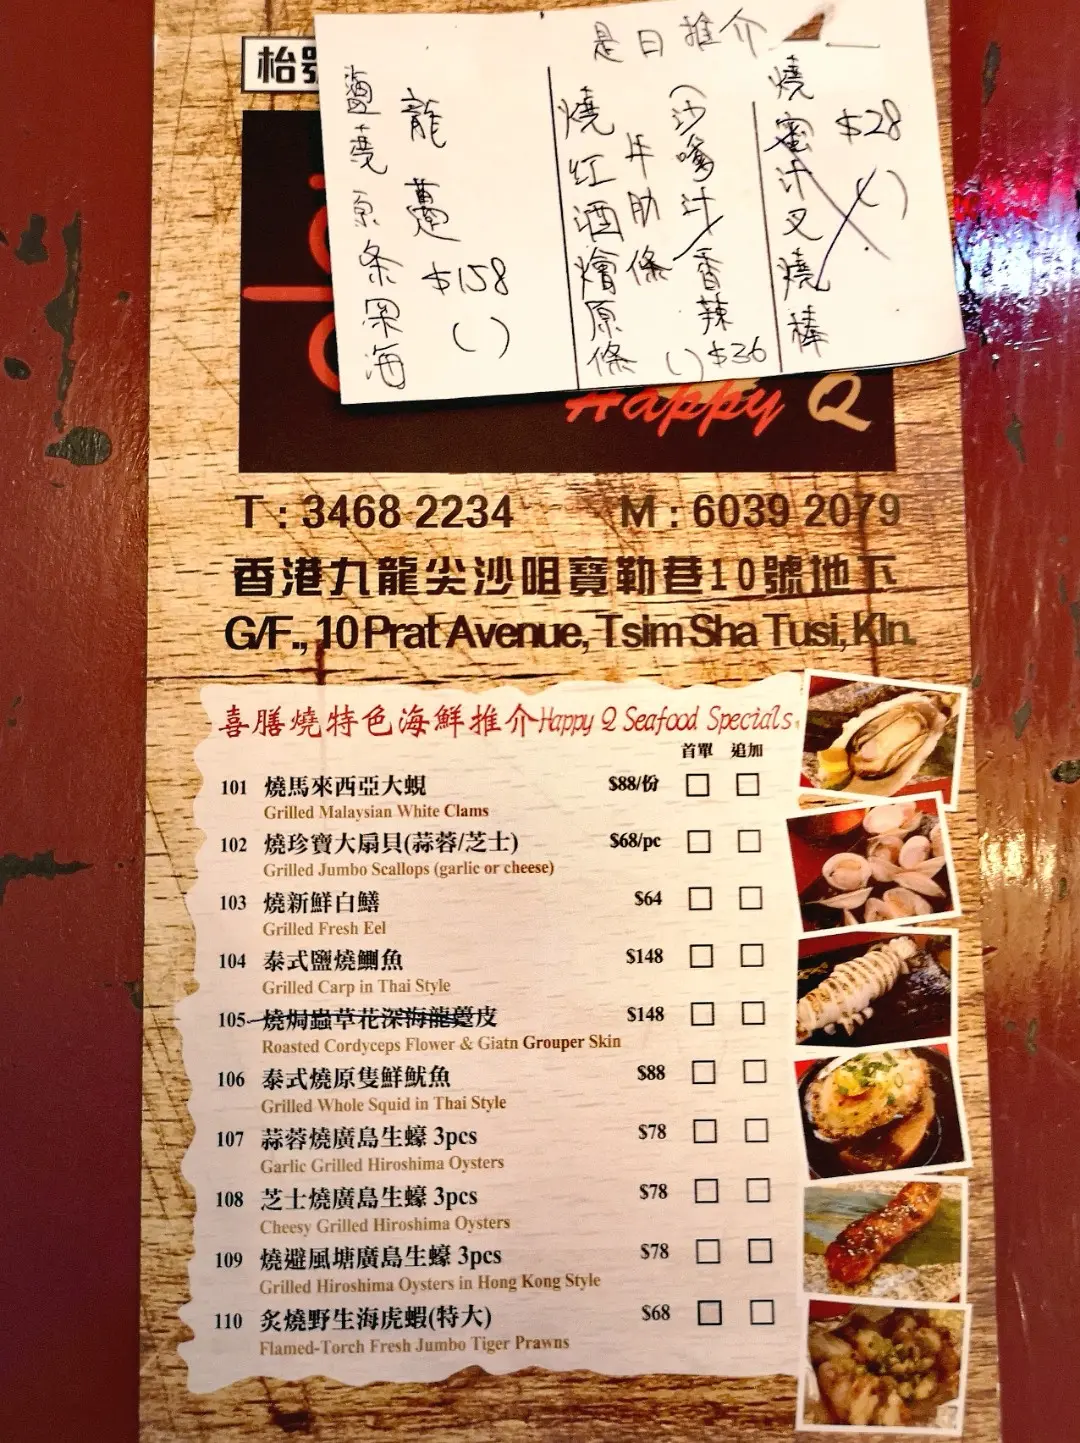 是日推介
燒蜜汁叉燒棒
$28
( )
(沙嗲汁/香辣
牛肋條
燒紅酒燴原條
( ) $36
龍躉
$158
( )
原条深海
枱號
Happy Q
T : 3468 2234 M : 6039 2079
香港九龍尖沙咀寶勒巷10號地下
G/F., 10 Prat Avenue, Tsim Sha Tusi, Kln.
喜膳燒特色海鮮推介-Happy Q Seafood Specials
首單 追加
101 燒馬來西亞大蜆 $88/份
Grilled Malaysian White Clams
102 燒珍寶大扇貝(蒜蓉/芝士) $68/pc
Grilled Jumbo Scallops (garlic or cheese)
103 燒新鮮白鱔 $64
Grilled Fresh Eel
104 泰式鹽燒鯽魚 $148
Grilled Carp in Thai Style
105 燒焗蟲草花深海龍躉皮 $148
Roasted Cordyceps Flower & Giatn Grouper Skin
106 泰式燒原隻鮮魷魚 $88
Grilled Whole Squid in Thai Style
107 蒜蓉燒廣島生蠔 3pcs $78
Garlic Grilled Hiroshima Oysters
108 芝士燒廣島生蠔 3pcs $78
Cheesy Grilled Hiroshima Oysters
109 燒避風塘廣島生蠔 3pcs $78
Grilled Hiroshima Oysters in Hong Kong Style
110 炙燒野生海虎蝦(特大) $68
Flamed-Torch Fresh Jumbo Tiger Prawns